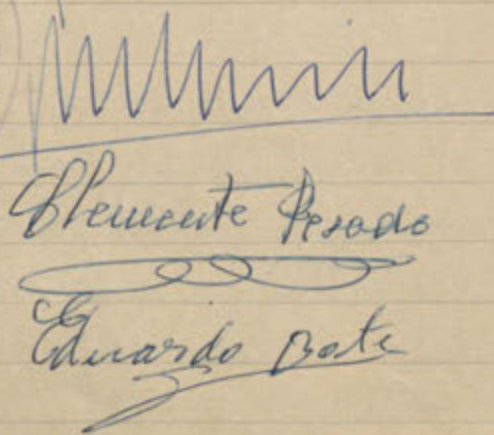 Clemente Pesado
Eduardo Bote